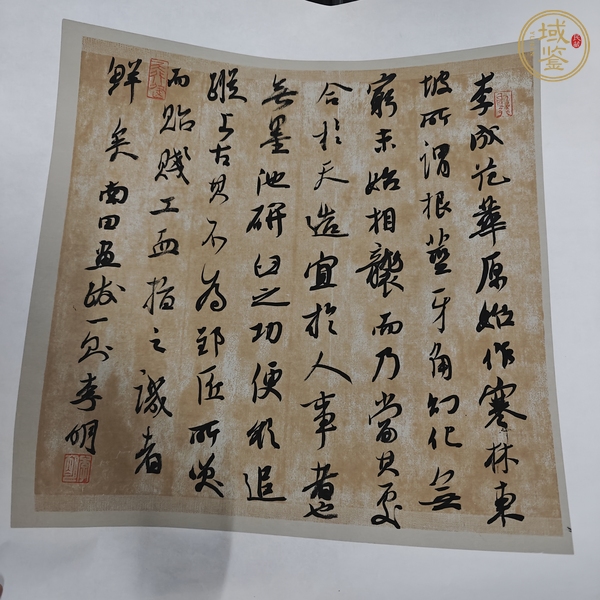 李成范華原始作寒林東
坡所謂根莖牙角幻化無
窮未始相襲而乃當其處
合於天造宜於人事者也
無墨池研臼之功便欲追
蹤上古其不為郢匠所笑
而貽賤工血指之譏者
鮮矣 南田畫跋一則 李明
域鉴